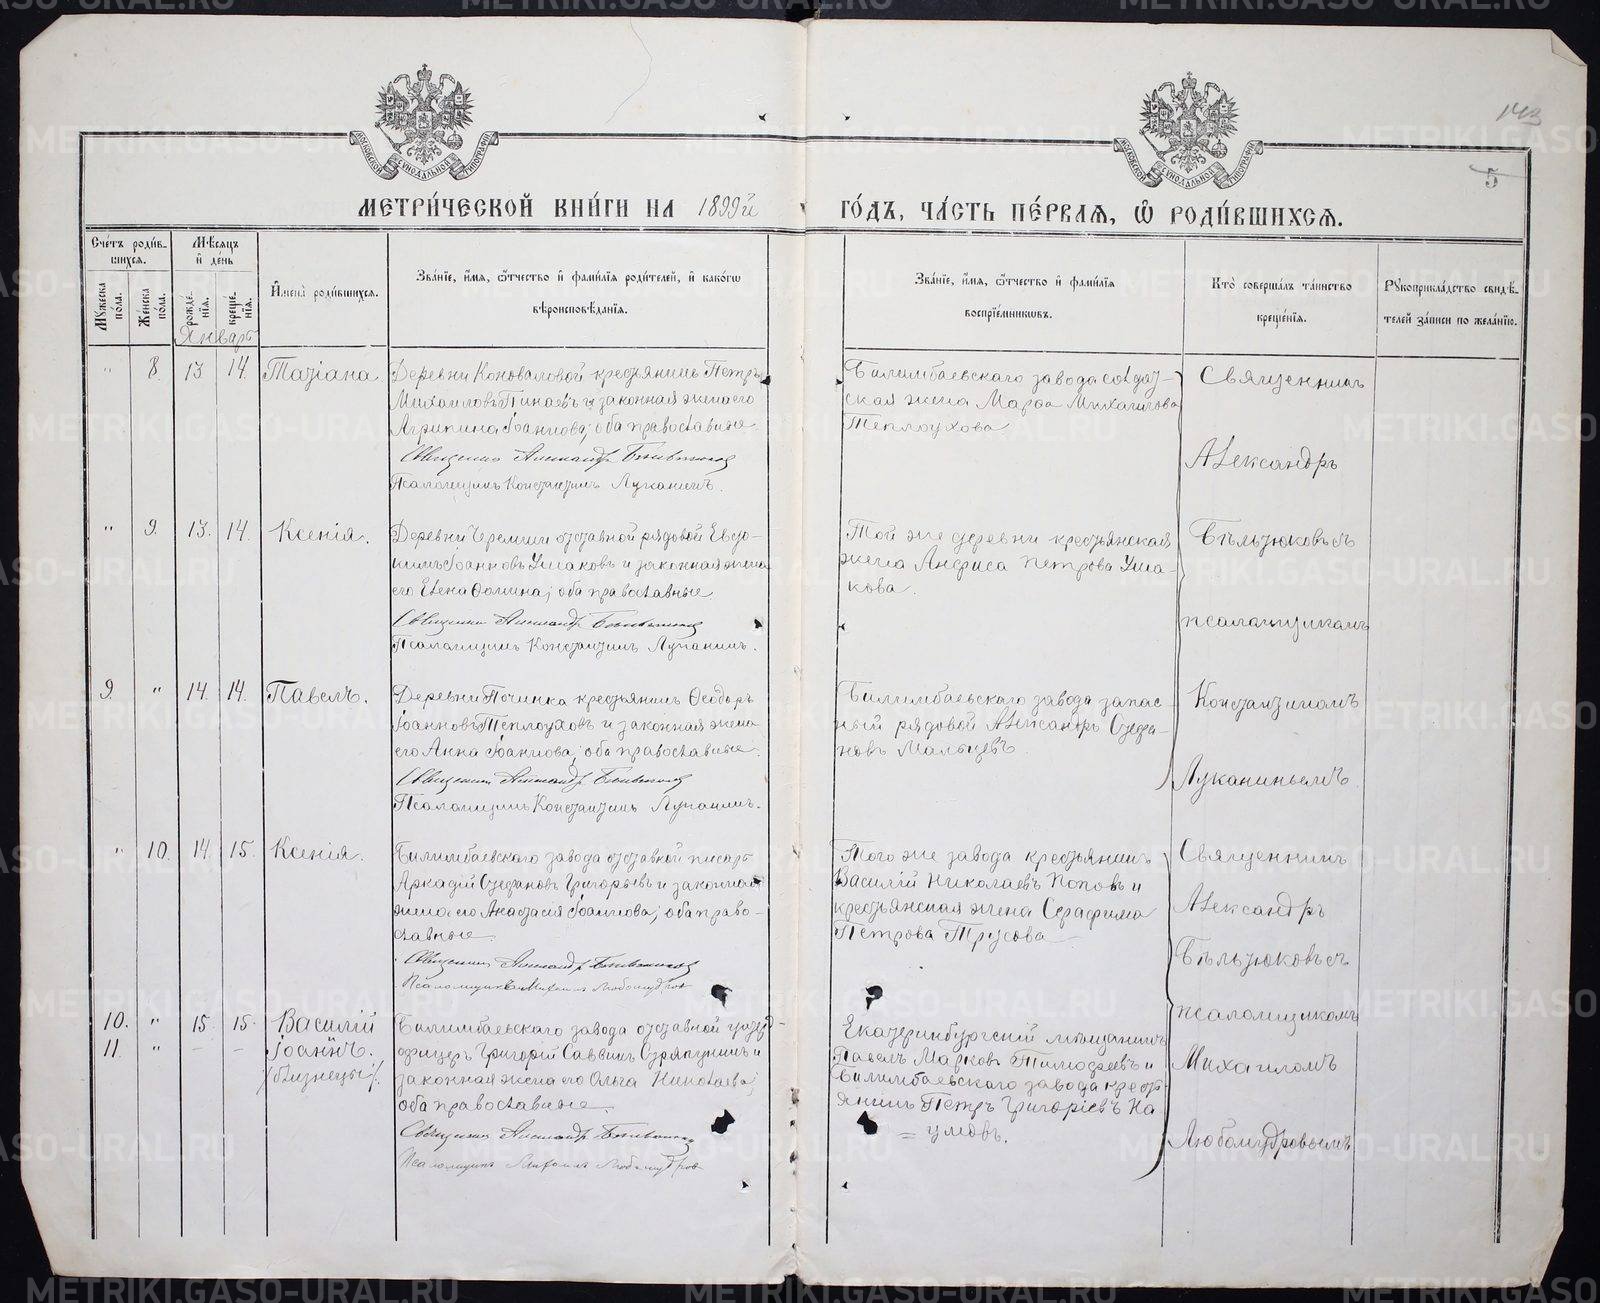 143
5
МОСКОВСКОЙ СѴНОДАЛЬНОЙ ТИПОГРАФІИ
МОСКОВСКОЙ СѴНОДАЛЬНОЙ ТИПОГРАФІИ
МЕТРИ́ЧЕСКОЙ КНИ́ГИ НА 1899й ГО́ДЪ, ЧА́СТЬ ПЕ́РВАЯ, Ѡ РОДИ́ВШИХСЯ.
Сче́тъ роди́в-
шихся.
Му́жеска по́ла.
Же́нска по́ла.
Мѣ́сяцъ
и де́нь
рожде́-
нія.
креще́-
нія.
Январь
И҆мена̀ роди́вшихся.
Зва́ніе, и҆́мя, ѻ҆́тчество и҆ фами́лія роди́телей, и҆ како́гѡ
вѣроисповѣ́данія.
Зва́ніе, и҆́мя, ѻ҆́тчество и҆ фами́лія
воспріе́мниковъ.
Кто̀ соверша́лъ та́инство
креще́нія.
Рукоприкла́дство свидѣ́-
телей за́писи по жела́нію.
" 8. 13. 14. Татіана.
Деревни Коноваловой крестьянинъ Петръ
Михаиловъ Пинаевъ и законная жена его
Агрипина Іоаннова; оба православные.
Священникъ Александръ Бѣльтюковъ
Псаломщикъ Константинъ Луканинъ.
Билимбаевскаго завода солдат-
ская жена Марѳа Михаилова
Теплоухова
Священникъ
Александръ
" 9. 13. 14. Ксенія.
Деревни Черемши отставной рядовой Евдо-
кимъ Іоанновъ Ушаковъ и законная жена
его Елена Ѳомина; оба православные
Священникъ Александръ Бѣльтюковъ
Псаломщикъ Константинъ Луканинъ.
Той же деревни крестьянская
жена Анфиса Петрова Уша-
кова.
Бѣльтюковъ съ
псаломщикомъ
9. " 14. 14. Павелъ.
Деревни Починка крестьянинъ Ѳеодоръ
Іоанновъ Теплоуховъ и законная жена
его Анна Іоаннова; оба православные.
Священникъ Александръ Бѣльтюковъ
Псаломщикъ Константинъ Луканинъ.
Билимбаевскаго завода запас-
ный рядовой Александръ Стефа-
новъ Мальцевъ
Константиномъ
Луканинымъ
" 10. 14. 15. Ксенія.
Билимбаевскаго завода отставной писарь
Аркадій Стефановъ Григорьевъ и законная
жена его Анастасія Іоаннова; оба право-
славные.
Священникъ Александръ Бѣльтюковъ
Псаломщикъ Михаилъ Любомудровъ
Того же завода крестьянинъ
Василій Николаевъ Поповъ и
крестьянская жена Серафима
Петрова Трусова
Священникъ
Александръ
Бѣльтюковъ съ
псаломщикомъ
10. " 15. 15. Василій
11. " – – Іоаннъ.
/близнецы/.
Билимбаевскаго завода отставной унтер-
офицеръ Григорій Саввинъ Стряпунинъ и
законная жена его Ольга Николаева;
оба православные.
Священникъ Александръ Бѣльтюковъ
Псаломщикъ Михаилъ Любомудровъ
Екатеринбургскій мѣщанинъ
Павелъ Марковъ Тимоѳеевъ и
Билимбаевскаго завода кресть-
янинъ Петръ Григоріевъ На
= умовъ.
Михаиломъ
Любомудровымъ